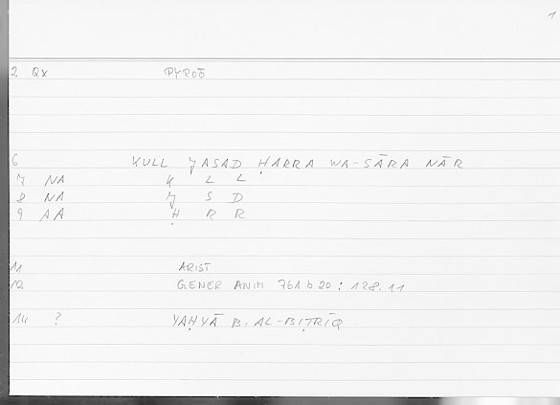 1
2 QX PYROŌ
6 KULL ǦASAD ḤARRA WA-SĀRA NĀR
7 NA K L L
8 NA Ǧ S D
9 AA Ḥ R R
11 ARIST
12 GENER ANIM 761 b 20 : 128.11
14 ? YAḤYĀ B. AL-BIṬRĪQ